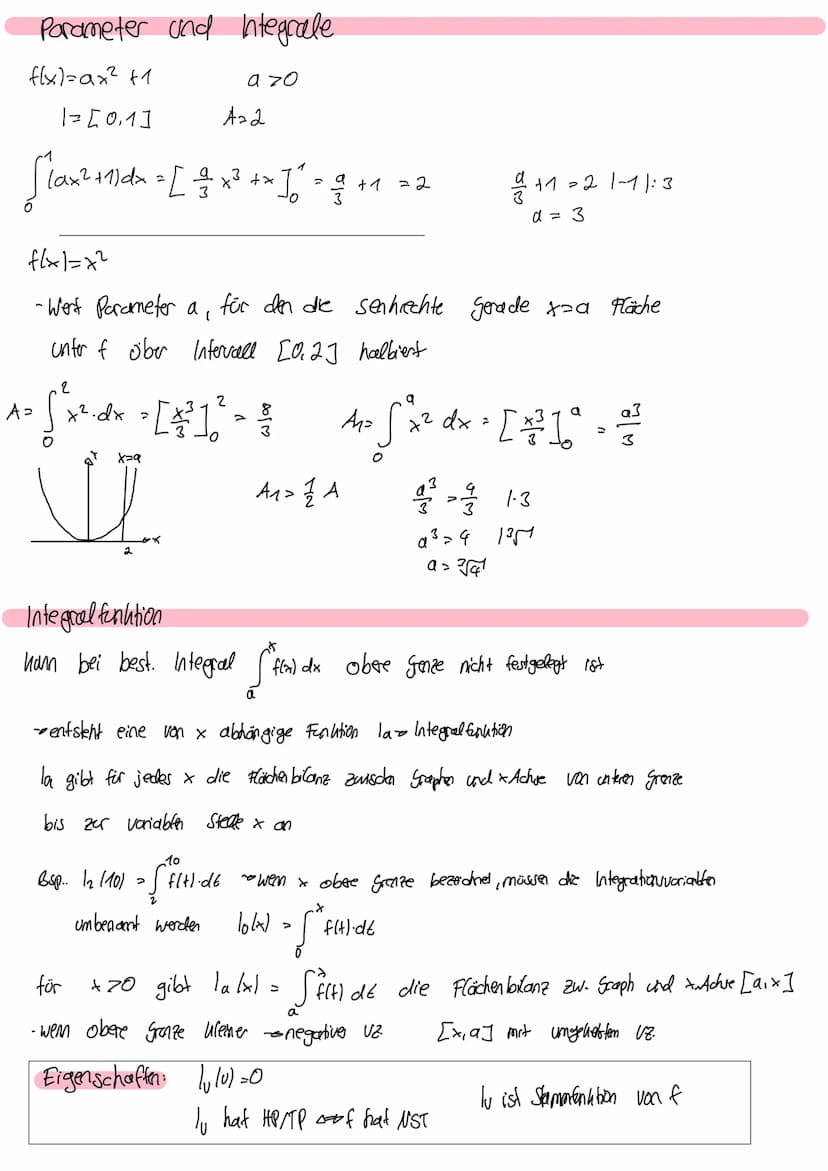 Parameter und Integrale
f(x)=ax² +1 a>0
I=[0,1] A=2
∫₀¹(ax²+1)dx = [a/3 x³ +x]₀¹ = a/3 +1 = 2 a/3 +1 = 2 |-1|:3
a = 3
f(x)=x²
-Wert Parameter a, für den die senkrechte gerade x=a Fläche
unter f über Intervall [0,2] halbiert
A= ∫₀² x²·dx = [x³/3]₀² = 8/3 A₁= ∫₀ᵃ x² dx = [x³/3]₀ᵃ = a³/3
Y x=a
A₁= 1/2 A a³/3 = 4/3 |·3
2 x
a³ = 4 |³√
a = ³√4
Integralfunktion
kann bei best. Integral ∫ₐˣ f(x) dx obere Grenze nicht festgelegt ist
→entsteht eine von x abhängige Funktion Ia→ Integralfunktion
Ia gibt für jedes x die Flächenbilanz zwischen Graphen und x Achse von unteren Grenze
bis zur variablen Stelle x an
Bsp.. I₂(10) = ∫₂¹⁰ f(t)·dt →wenn x obere Grenze bezeichnet, müssen die Integrationsvariablen
umbenannt werden I₀(x) = ∫₀ˣ f(t)·dt
für x>0 gibt Ia(x) = ∫ₐˣ f(t) dt die Flächenbilanz zw. Graph und x.Achse [a,x]
-wenn obere Grenze kleiner →negatives VZ [x,a] mit umgekehrten VZ.
Eigenschaften: Iᵤ(u) =0
Iᵤ ist Stammfunktion von f
Iᵤ hat HP/TP ⇔ f hat NST